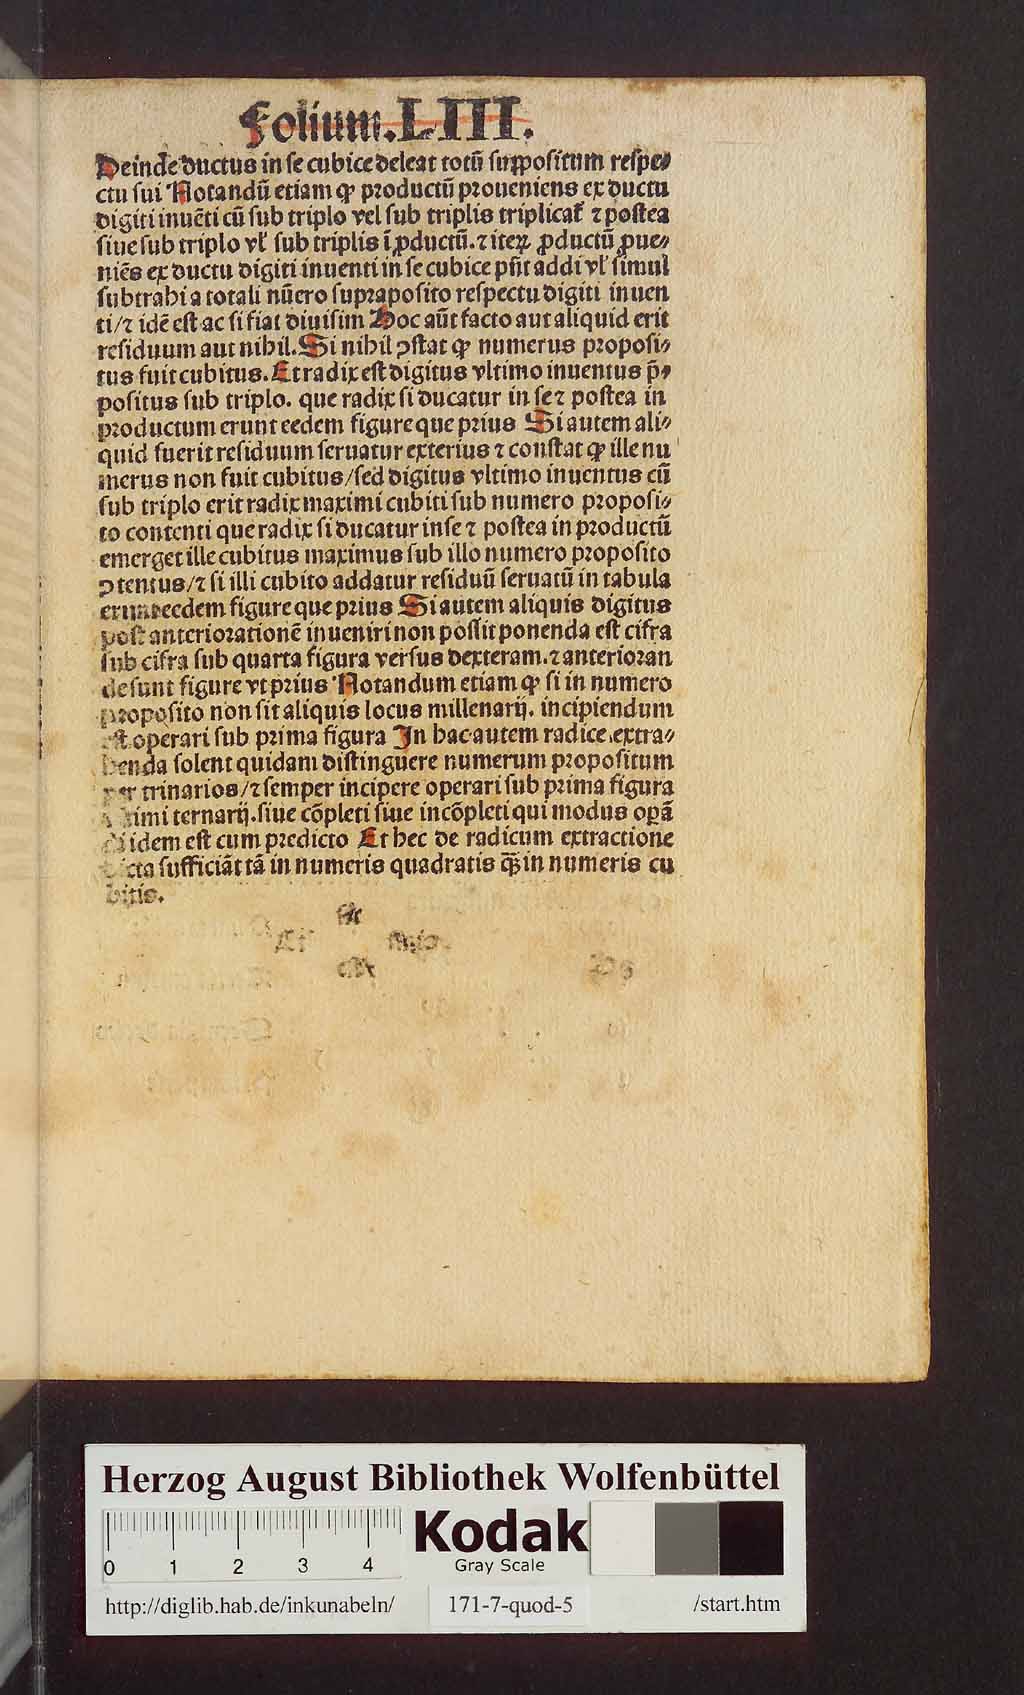 Folium.LIII.
Deinde ductus in se cubice deleat totũ suppositum respe⸗
ctu sui Notandũ etiam ꝙ productũ proueniens ex ductu
digiti inuẽti cũ sub triplo vel sub triplis triplicat̃ ⁊ postea
siue sub triplo vl̕ sub triplis ĩ ꝓductũ. ⁊ iteꝝ ꝓductũ ꝓue⸗
niẽs ex ductu digiti inuenti in se cubice pñt addi vl̕ simul
subtrahi a totali nũero supraposito respectu digiti inuen
ti/⁊ idẽ est ac si fiat diuisim Hoc aũt facto aut aliquid erit
residuum aut nihil. Si nihil ꝯstat ꝙ numerus proposi⸗
tus fuit cubitus. Et radix est digitus vltimo inuentus p̃⸗
positus sub triplo. que radix si ducatur in se ⁊ postea in
productum erunt eedem figure que prius Si autem ali⸗
quid fuerit residuum seruatur exterius ⁊ constat ꝙ ille nu
merus non fuit cubitus/sed digitus vltimo inuentus cũ
sub triplo erit radix maximi cubiti sub numero proposi⸗
to contenti que radix si ducatur in se ⁊ postea in productũ
emerget ille cubitus maximus sub illo numero proposito
ꝯtentus/⁊ si illi cubito addatur residuũ seruatũ in tabula
erunt eedem figure que prius Si autem aliquis digitus
post anteriorationẽ inueniri non possit ponenda est cifra
sub cifra sub quarta figura versus dexteram. ⁊ anterioran
de sunt figure vt prius Notandum etiam ꝙ si in numero
proposito non sit aliquis locus millenarij. incipiendum
est operari sub prima figura In hac autem radice extra⸗
henda solent quidam distinguere numerum propositum
per trinarios/⁊ semper incipere operari sub prima figura
vltimi ternarij. siue cõpleti siue incõpleti qui modus oꝑã
di idem est cum predicto Et hec de radicum extractione
dicta sufficiãt tã in numeris quadratis q̃ꝫ in numeris cu
bitis.
Herzog August Bibliothek Wolfenbüttel
0 1 2 3 4
Kodak
Gray Scale
http://diglib.hab.de/inkunabeln/ 171-7-quod-5 /start.htm